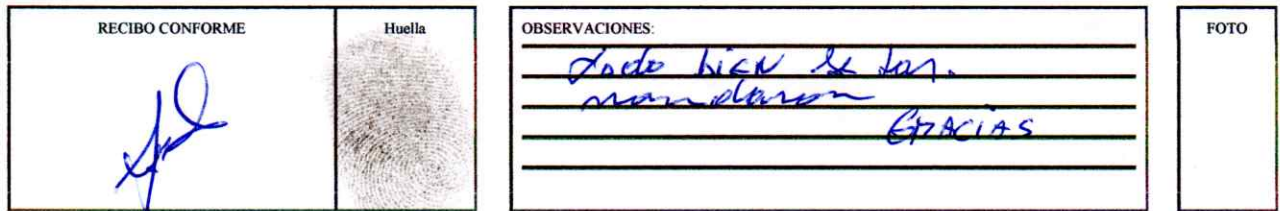 RECIBO CONFORME
Huella
OBSERVACIONES:
todo biEN se
mandaron
GRACIAS
FOTO